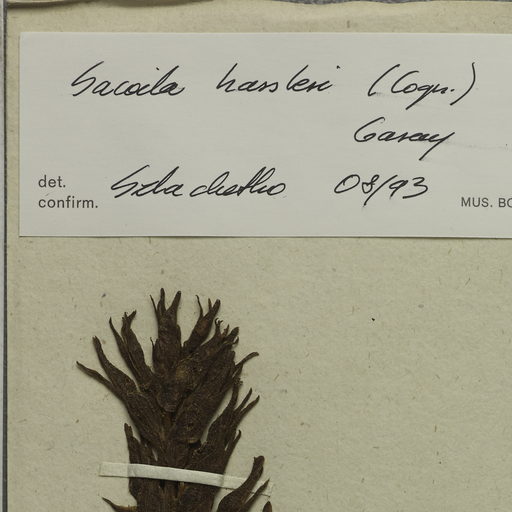 Sacoila hassleri (Cogn.)
Garay
det.
confirm. Szlachetko 08/93
MUS. BO